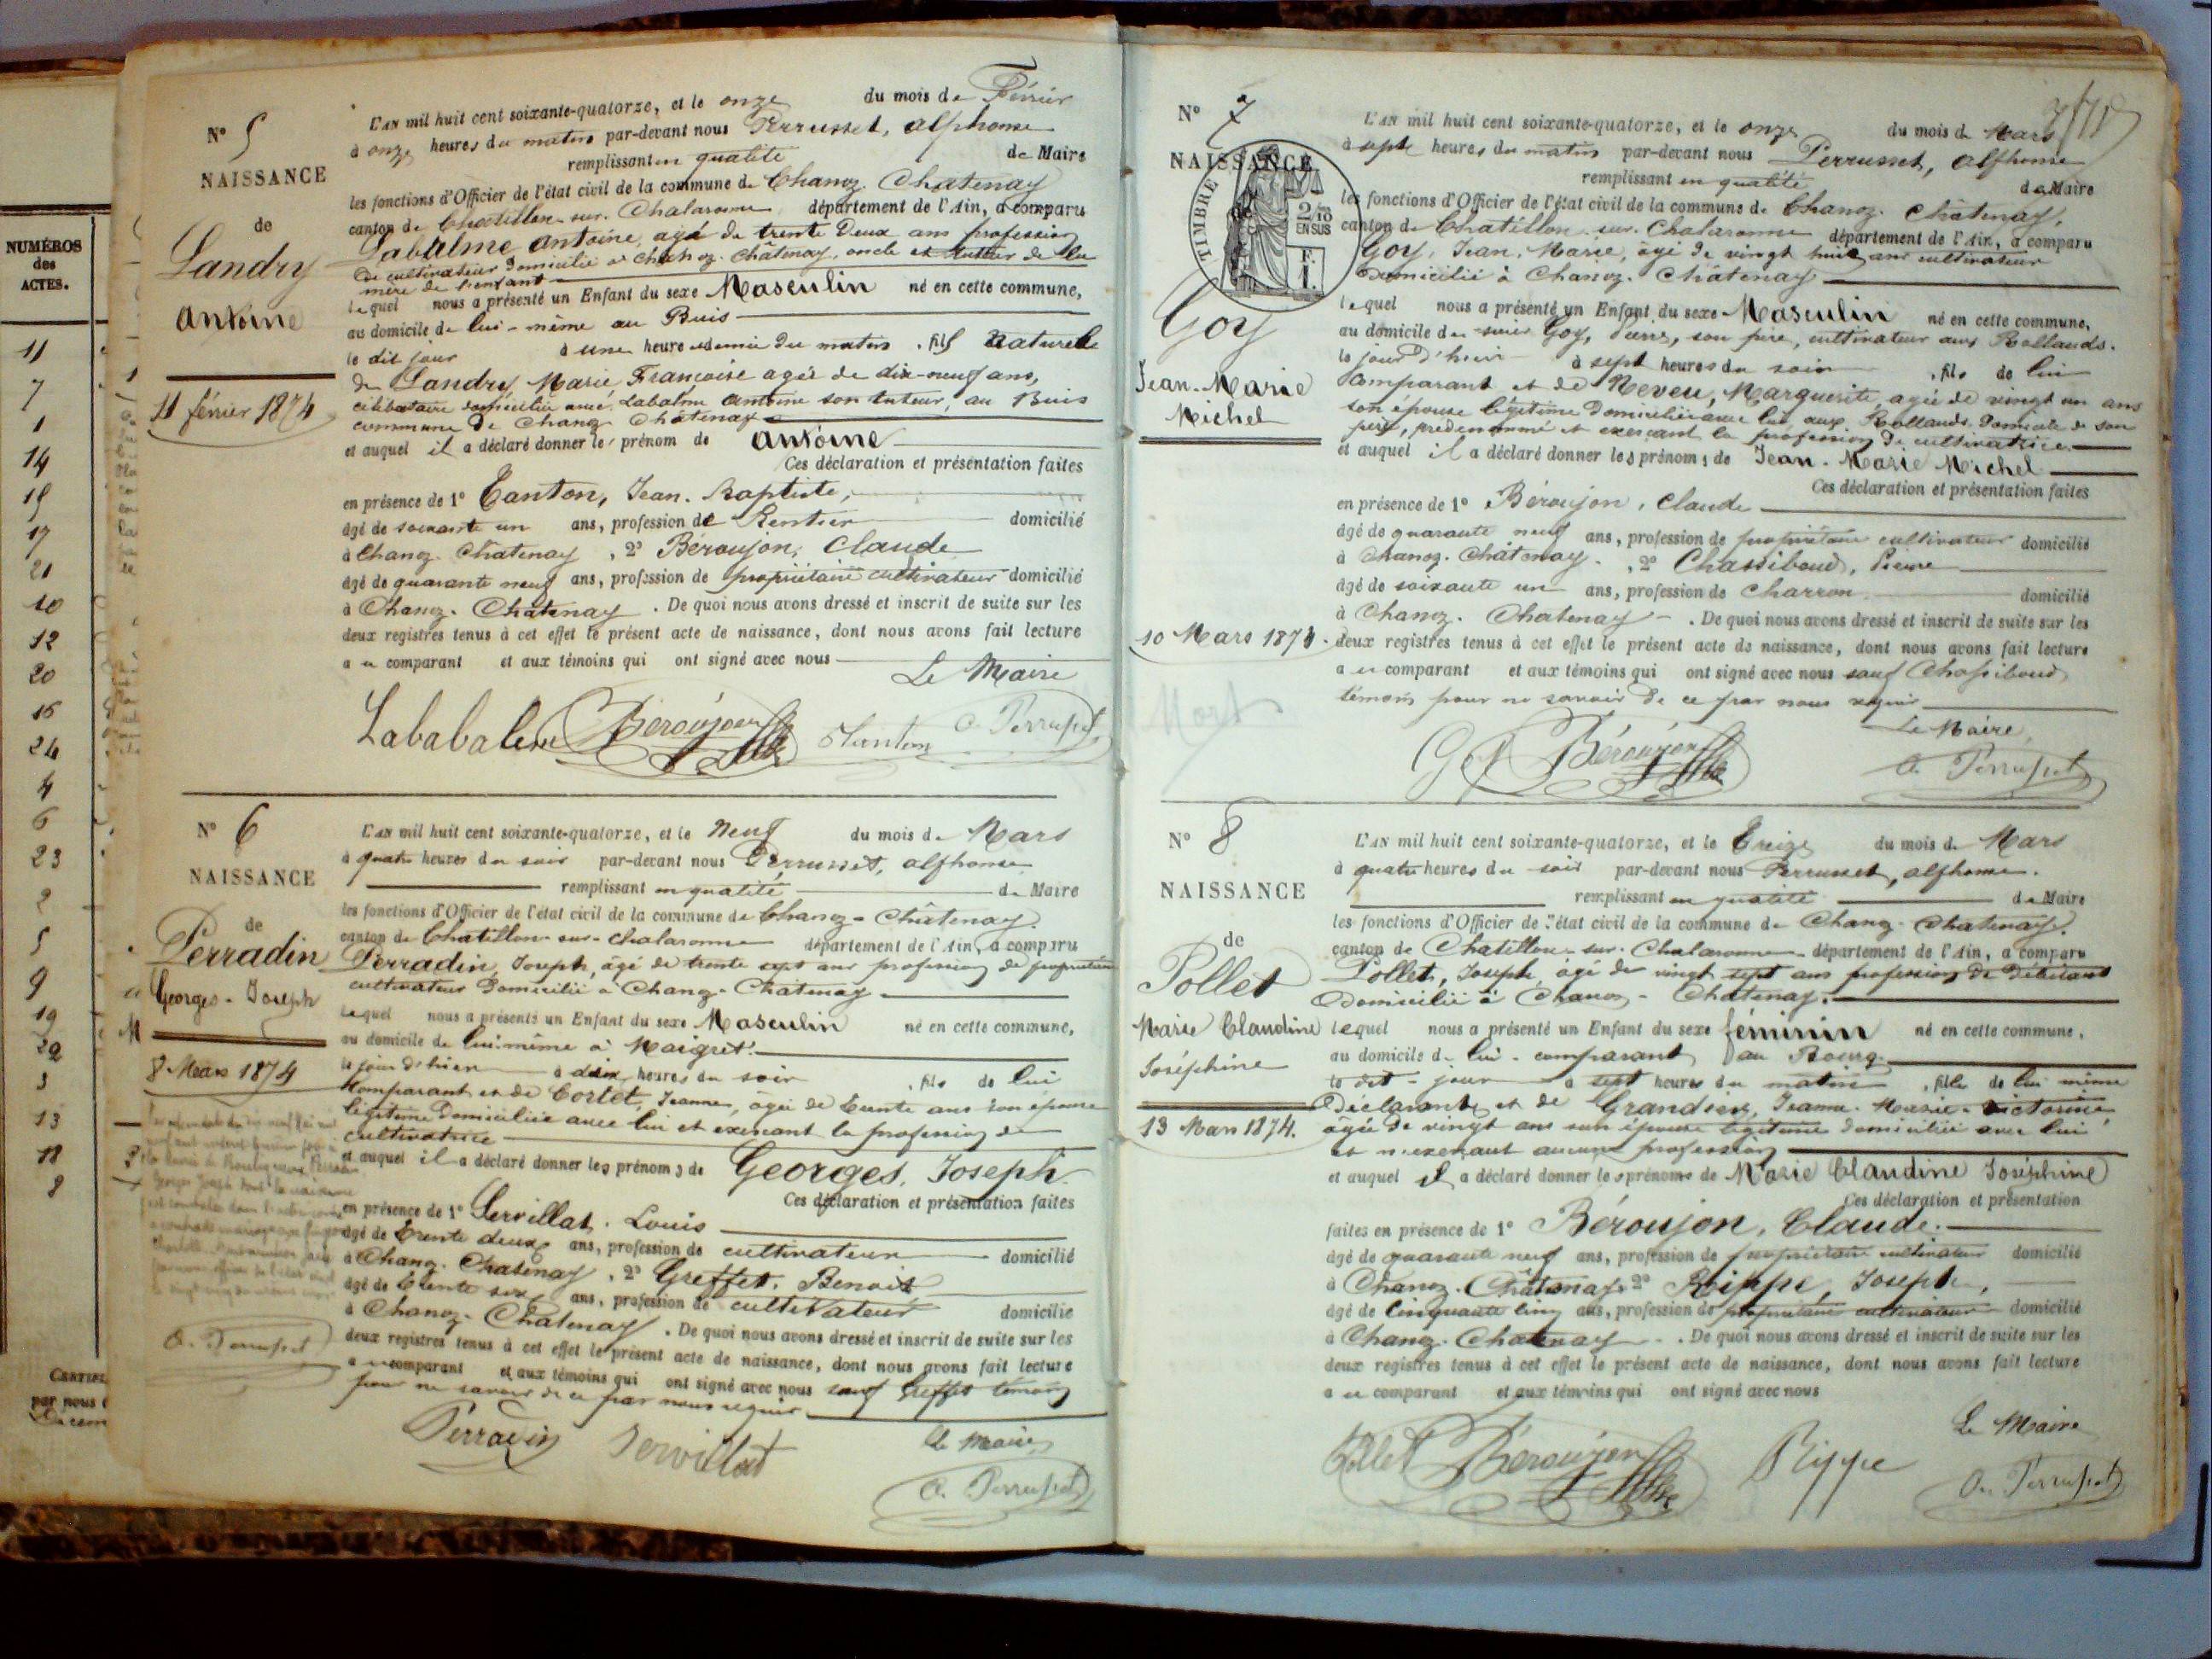 NUMÉROS
des
ACTES.
11
7
1
14
15
17
21
10
12
20
16
24
4
6
23
2
5
9
19
22
3
13
18
8
par nous
N° 5
NAISSANCE
de
Landry
Antoine
11 février 1874
L'AN mil huit cent soixante-quatorze, et le onze du mois de Février
à onze heures du matin par-devant nous Perrusset, alphonse
remplissant en qualité de Maire
les fonctions d'Officier de l'état civil de la commune de Chanoz-Chatenay
canton de Chatillon-sur-Chalaronne département de l'Ain, a comparu
Labalme antoine, agé de trente deux ans profession
de cultivateur domicilié à Chanoz-Châtenay, oncle et tuteur de la
mère de l'enfant
lequel nous a présenté un Enfant du sexe Masculin né en cette commune,
au domicile de lui-même au Buis
le dit jour à une heure et demie du matin, fils naturelle
de Landry Marie Françoise agée de dix-neuf ans,
célibataire domiciliée avec Labalme antoine son tuteur, au Buis
commune de Chanoz Châtenay
et auquel il a déclaré donner le prénom de antoine
Ces déclaration et présentation faites
en présence de 1° Tanton, Jean-Baptiste,
âgé de soixante un ans, profession de Rentier domicilié
à Chanoz-Châtenay, 2° Béroujon, Claude
âgé de quarante neuf ans, profession de propriétaire cultivateur domicilié
à Chanoz-Châtenay. De quoi nous avons dressé et inscrit de suite sur les
deux registres tenus à cet effet le présent acte de naissance, dont nous avons fait lecture
au comparant et aux témoins qui ont signé avec nous
Le Maire
Béroujon Tanton A. Perrusset
N° 6
NAISSANCE
de
Perradin
Georges-Joseph
8 Mars 1874
A. Perrusset
L'AN mil huit cent soixante-quatorze, et le Neuf du mois de Mars
à quatre heures du soir par-devant nous Perrusset, alphonse
remplissant en qualité de Maire
les fonctions d'Officier de l'état civil de la commune de Chanoz-Châtenay
canton de Chatillon-sur-Chalaronne département de l'Ain, a comparu
Perradin, Joseph, âgé de trente sept ans profession de propriétaire
cultivateur domicilié à Chanoz-Chatenay
Lequel nous a présenté un Enfant du sexe Masculin né en cette commune,
au domicile de lui-même à Maigret
le jour d'hier à deux heures du soir, fils de lui
Comparant et de Cortet, Jeanne, âgée de trente ans son épouse
légitime domiciliée avec lui et exerçant la profession de
cultivatrice
et auquel il a déclaré donner les prénoms de Georges, Joseph
Ces déclaration et présentation faites
en présence de 1° Servillat, Louis
âgé de trente deux ans, profession de cultivateur domicilié
à Chanoz-Chatenay, 2° Greffet, Benoit
âgé de trente six ans, profession de cultivateur domicilié
à Chanoz-Chatenay. De quoi nous avons dressé et inscrit de suite sur les
deux registres tenus à cet effet le présent acte de naissance, dont nous avons fait lecture
au comparant et aux témoins qui ont signé avec nous sauf Greffet témoin
pour ne savoir de ce par nous requis
Perradin Servillat Le Maire
A. Perrusset
N° 7
NAISSANCE
TIMBRE
2/10
EN SUS
F.
1.
Goy
Jean-Marie
Michel
10 Mars 1874.
Mort
L'AN mil huit cent soixante-quatorze, et le onze du mois de Mars
à sept heures du matin par-devant nous Perrusset, alphonse
remplissant en qualité de Maire
les fonctions d'Officier de l'état civil de la commune de Chanoz-Châtenay,
canton de Chatillon-sur-Chalaronne département de l'Ain, a comparu
Goy, Jean-Marie, âgé de vingt huit ans cultivateur
domicilié à Chanoz-Châtenay
lequel nous a présenté un Enfant du sexe Masculin né en cette commune,
au domicile du sieur Goy, Pierre, son père, cultivateur aux Rollands.
le jour d'hier à sept heures du soir, fils de lui
Comparant et de Neveu, Marguerite, agée de vingt un ans
son épouse légitime domiciliée avec lui, aux Rollands domicile de son
père, prédénommé et exerçant la profession de cultivatrice
et auquel il a déclaré donner les prénoms de Jean-Marie Michel
Ces déclaration et présentation faites
en présence de 1° Béroujon, Claude
âgé de quarante neuf ans, profession de propriétaire cultivateur domicilié
à Chanoz-Châtenay, 2° Chassiboud, Pierre
âgé de soixante un ans, profession de Charron domicilié
à Chanoz-Chatenay. De quoi nous avons dressé et inscrit de suite sur les
deux registres tenus à cet effet le présent acte de naissance, dont nous avons fait lecture
au comparant et aux témoins qui ont signé avec nous sauf Chassiboud
témoin pour ne savoir de ce par nous requis
Le Maire,
Goy Béroujon A. Perrusset
N° 8
NAISSANCE
de
Pollet
Marie Claudine
Joséphine
13 Mars 1874.
L'AN mil huit cent soixante-quatorze, et le treize du mois de Mars
à quatre heures du soir par-devant nous Perrusset, alphonse.
remplissant en qualité de Maire
les fonctions d'Officier de l'état civil de la commune de Chanoz-Chatenay,
canton de Chatillon-sur-Chalaronne département de l'Ain, a comparu
Pollet, Joseph, âgé de vingt sept ans profession de débitant
Domicilié à Chanoz-Chatenay.
lequel nous a présenté un Enfant du sexe féminin né en cette commune,
au domicile de lui-comparant au Bourg
le dit-jour à sept heures du matin, fille de lui même
Déclarant et de Grandier, Jeanne-Marie-Victorine
âgée de vingt ans son épouse légitime domiciliée avec lui
et n'exerçant aucune profession
et auquel il a déclaré donner les prénoms de Marie Claudine Joséphine
Ces déclaration et présentation
faites en présence de 1° Béroujon, Claude.
âgé de quarante neuf ans, profession de propriétaire cultivateur domicilié
à Chanoz-Châtenay 2° Rippe, Joseph,
âgé de cinquante cinq ans, profession de propriétaire cultivateur domicilié
à Chanoz-Chatenay. De quoi nous avons dressé et inscrit de suite sur les
deux registres tenus à cet effet le présent acte de naissance, dont nous avons fait lecture
au comparant et aux témoins qui ont signé avec nous
Le Maire
Pollet Béroujon Rippe A. Perrusset